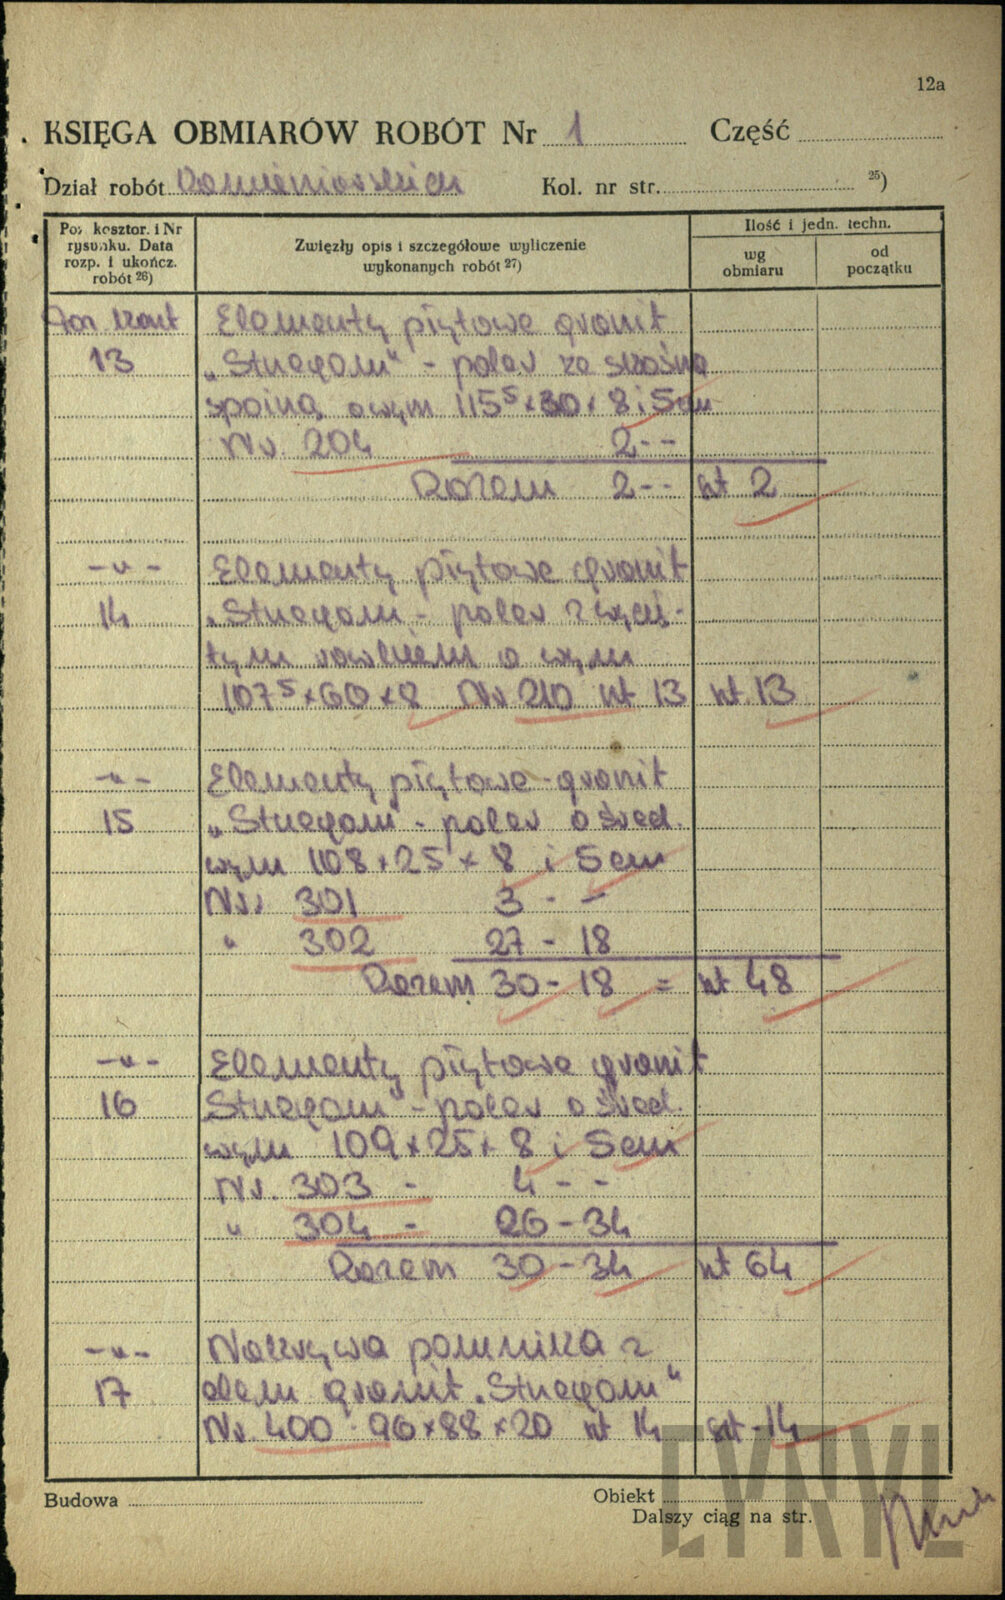 12a
KSIĘGA OBMIARÓW ROBÓT Nr 1 Część
Dział robót Kamieniarskich Kol. nr str. 25)
Poz. kosztor. i Nr rysunku. Data rozp. i ukończ. robót 26)
Zwięzły opis i szczegółowe wyliczenie wykonanych robót 27)
Ilość i jedn. techn.
wg obmiaru
od początku
Elementy płytowe granit
13 „Strzegom" - poler ze skośną
spoiną o wym 115⁵ × 30 × 8 i 5 cm
Nr. 204 2 - -
Razem 2 - - szt 2
-„- Elementy płytowe granit
14 „Strzegom - poler z wycię-
tym o wym
107⁵ × 60 × 8 Nr 210 szt 13 szt. 13
-„- Elementy płytowe - granit
15 „Strzegom" - poler o śred.
wym 108 × 25 × 8 i 5 cm
Nr. 301 3 - -
" 302 27 - 18
Razem 30 - 18 = szt 48
-„- Elementy płytowe granit
16 Strzegom" - poler o śred.
wym 109 × 25 × 8 i 5 cm
Nr. 303 - 4 - -
" 304 - 26 - 34
Razem 30 - 34 szt 64
-„- Nakrywa pomnika z
17 elem granit „Strzegom"
Nr. 400 96 × 88 × 20 szt 14 szt - 14
Budowa Obiekt
Dalszy ciąg na str.